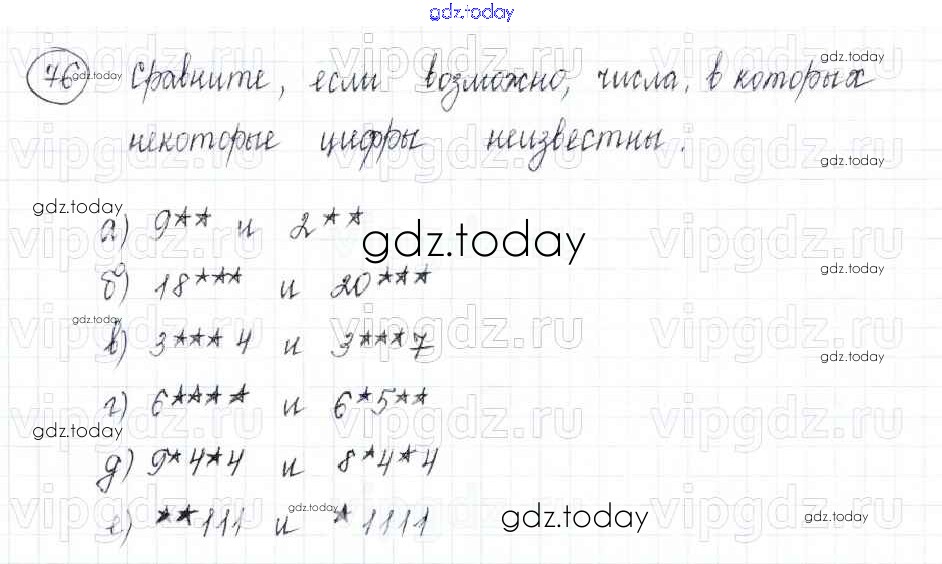 gdz.today
76 gdz.today Сравните, если возможно, числа, в которых gdz.today
некоторые цифры неизвестны. gdz.today
vipgdz.ru vipgdz.ru vipgdz.ru
gdz.today
а) 9** и 2** gdz.today
vipgdz.ru vipgdz.ru vipgdz.ru
б) 18*** и 20*** gdz.today
gdz.today
в) 3***4 и 3***7 gdz.today
vipgdz.ru vipgdz.ru vipgdz.ru
г) 6**** и 6*5**
gdz.today
vipgdz.ru vipgdz.ru vipgdz.ru
д) 9*4*4 и 8*4*4
vipgdz.ru vipgdz.ru vipgdz.ru
е) **111 и gdz.today *1111 gdz.today gdz.today